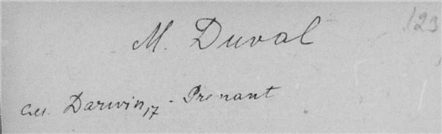 M. Duval
123
Coll. Darwin, 17 - Prenant